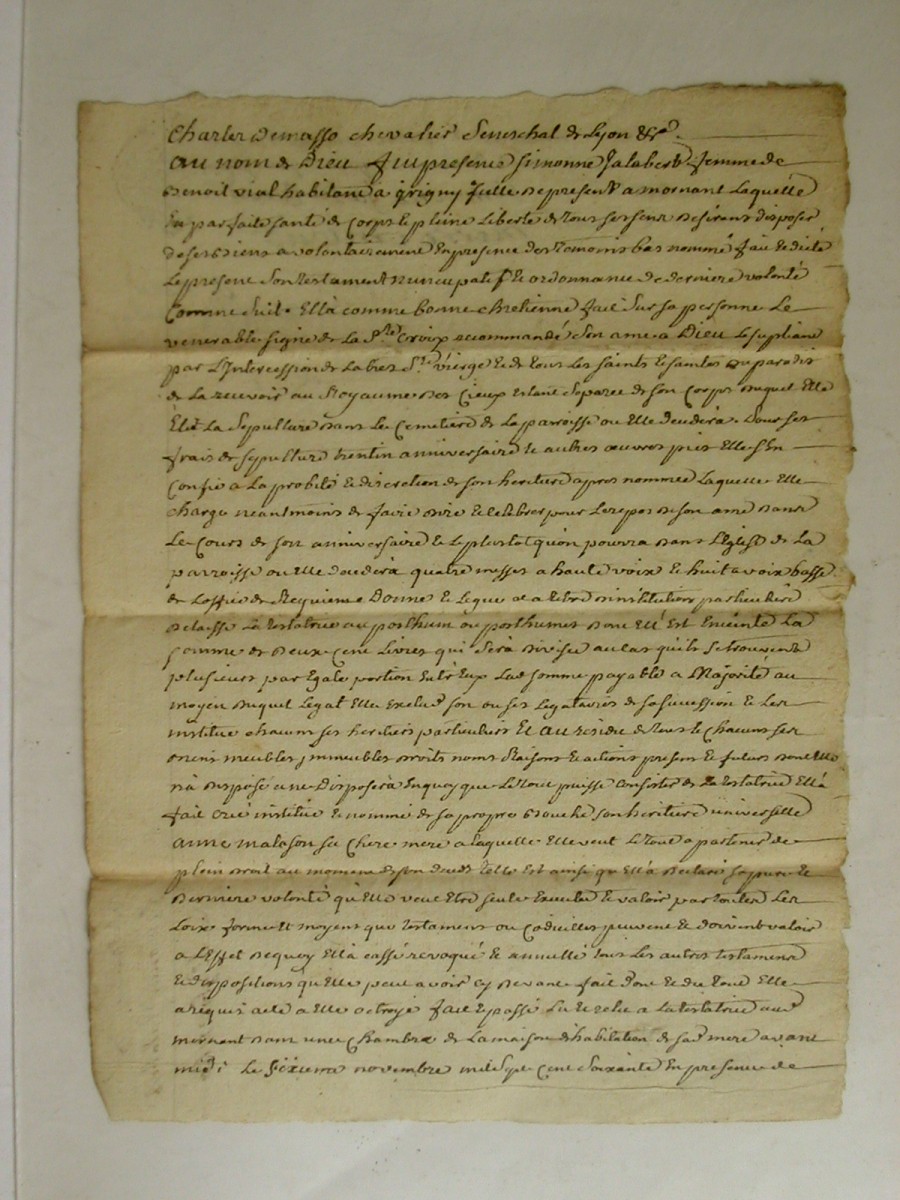 Charles Demasso chevalier Seneschal de Lyon &c.
au nom de Dieu fut presente simonne Jalabert femme de
Benoit vial habitant a grigny Icelle De present a mornant Laquelle
En parfaite santé de Corps Et pleine Liberté de tous ses sens Desirant disposer
de ses Biens a volontairement En presence des temoins bas nommé fait Et dicté
Le present son testament nuncupatif Et ordonnance de derniere volonté
Comme suit. Ella comme bonne chretienne fait sur sa personne Le
venerable signe de La Ste Croix recommandé son ame a Dieu Le supliant
par L'Intercession de La tres Ste vierge Et de tous Les saints Et saintes Du paradis
de La recevoir au Royaume des Cieux Estant separée de son Corps Duquel Elle
Elit La sepulture Dans Le Cemetiere de La parroisse ou Elle decedera. Pour ses
frais de sepulture trentin anniversaire Et autres œuvres pies Elle s'En
Confie a La probité Et discretion de son heritiere apres nommée Laquelle Elle
charge neantmoins de faire dire Et celebrer pour Le repos De son ame Dans
Le Cours de son anniversaire Et Le plustot qu'on pourra Dans L'Eglise de La
parroisse ou Elle decedera quatre messes a haute voix Et huit a voix basse
de L'office de Requiem Donne Et Legue a titre D'institution particuliere
Delaisse La testatrice au posthum ou posthumes Dont Ell' Est Enceinte La
somme de Deux Cent Livres qui sera Divisée au cas qu'ils se trouvent
plusieurs par Egale portion Entr'Eux Lad somme payable a Majorité au
moyen Duquel Legat Elle Exclud son ou ses Legataires de sa succession Et Les
institue chacun ses heritiers particuliers Et au residu de tous Et Chacuns ses
Biens meubles immeubles Droits noms Raisons Et actions presents Et futurs Dont Elle
n'a Disposé ou ne Disposera En quoy que Le tout puisse Consister de La testatrice Ella
fait Créé institué Et nommé de sa propre Bouche son heritiere universelle
anne malason sa chere mere a Laquelle Elle veut Le tout apartenir de
plein droit au moment de son deces telle Est ainsi qu'Ella Declaré sa pure Et
Derniere volonté qu'Elle veut Etre seule Executée Et valoir par toutes Les
Loix formes Et moyens que testament ou Codicilles peuvent Et doivent valoir
a L'Effet Dequoy Ella cassé revoqué Et annullé tous Les autres testamens
Et dispositions qu'Elle peut avoir cy Devant fait Dont Et du tout Elle
a requis acte a Elle octroyé fait Et passé Lu Et relu a La testatrice aud
mornant Dans une Chambre de La maison d'habitation de sad mere avant
midi Le sixieme novembre mil sept Cent soixante En presence de